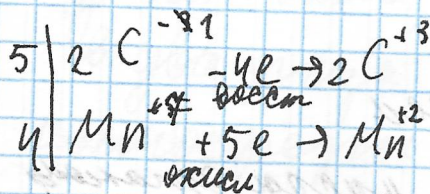 5 | 2 C⁻¹ -4e → 2 C⁺³
восст
4 | Mn⁺⁷ +5e → Mn⁺²
окисл